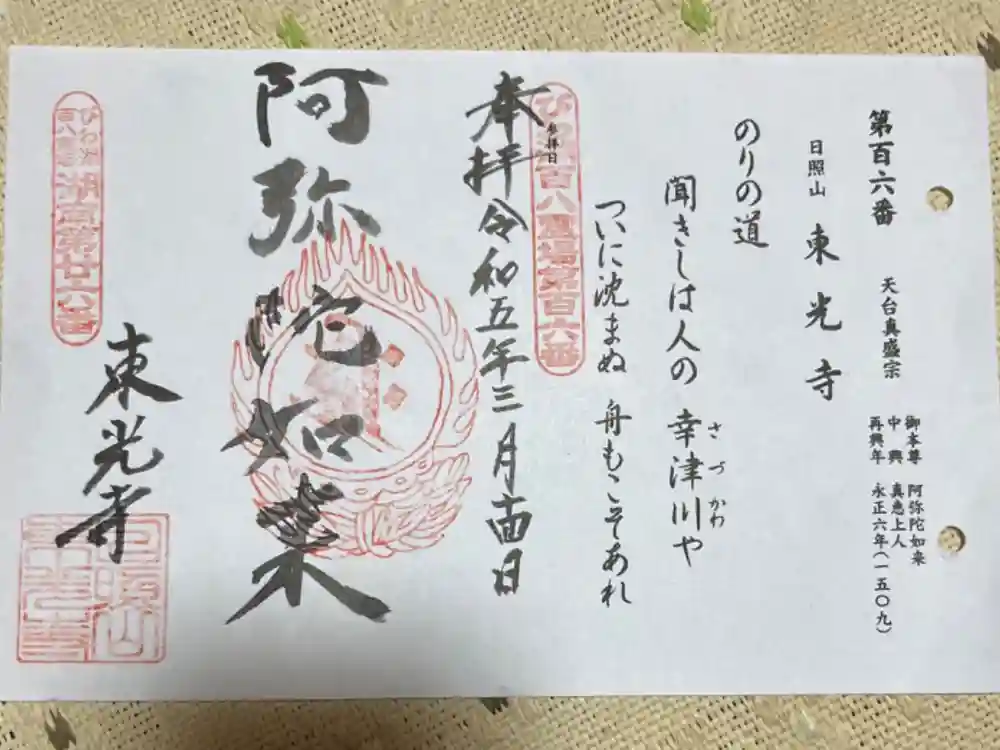 第百六番
天台真盛宗
御本尊 阿弥陀如来
中興 真恵上人
再興年 永正六年(一五〇九)
日照山 東光寺
のりの道
聞きしは人の 幸津川や
さづかわ
ついに沈まぬ 舟もこそあれ
びわ湖百八霊場第百六番
参拝日
奉拝 令和五年三月十四日
阿弥陀如来
びわ湖百八霊場
湖東第廿六番
東光寺
日照山東光寺